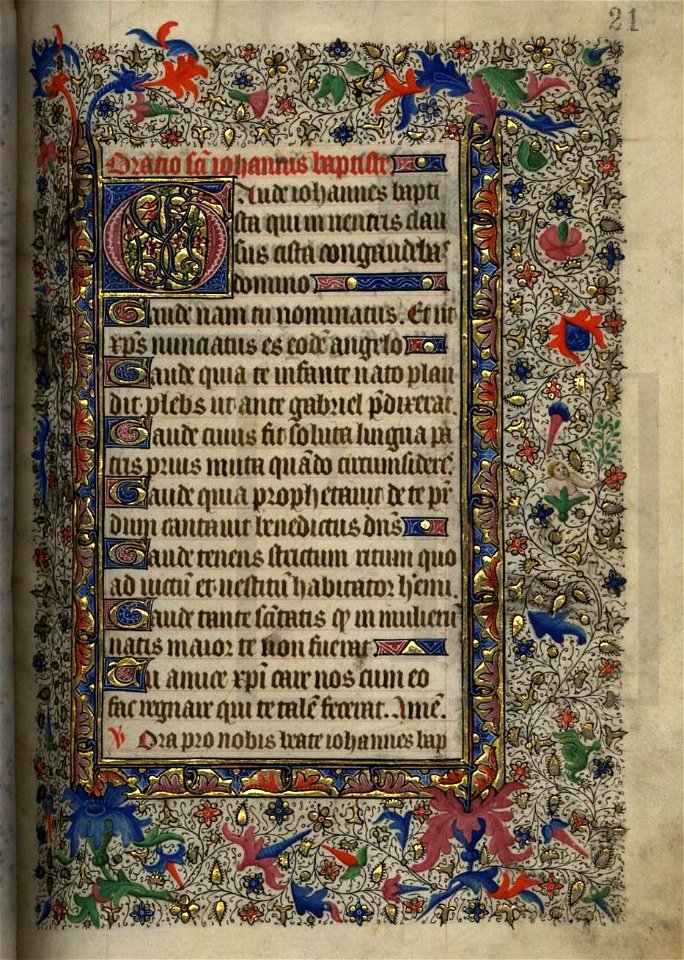 21
Oratio sci iohannis baptiste
Gaude iohannes bapti
sta qui in ventris clau
sus cista congaudebas
domino
Gaude nam tu nominatus. Et ut
xps nunciatus es eodē angelo
Gaude quia te infante nato plau
dit plebs ut ante gabriel pdixerat.
Gaude cuius fit soluta lingua pa
tris prius muta quādo circumsideris
Gaude quia prophetavit de te pr
dum cantavit benedictus dns
Gaude tenens strictum ritum quo
ad victū et vestitū habitator hemi.
Gaude tante sctitatis qp in mulieru
natis maior te non fuerat
Tu amice xpi care nos cum eo
fac regnare qui te talē fecerat. Amē.
V Ora pro nobis beate iohannes bap